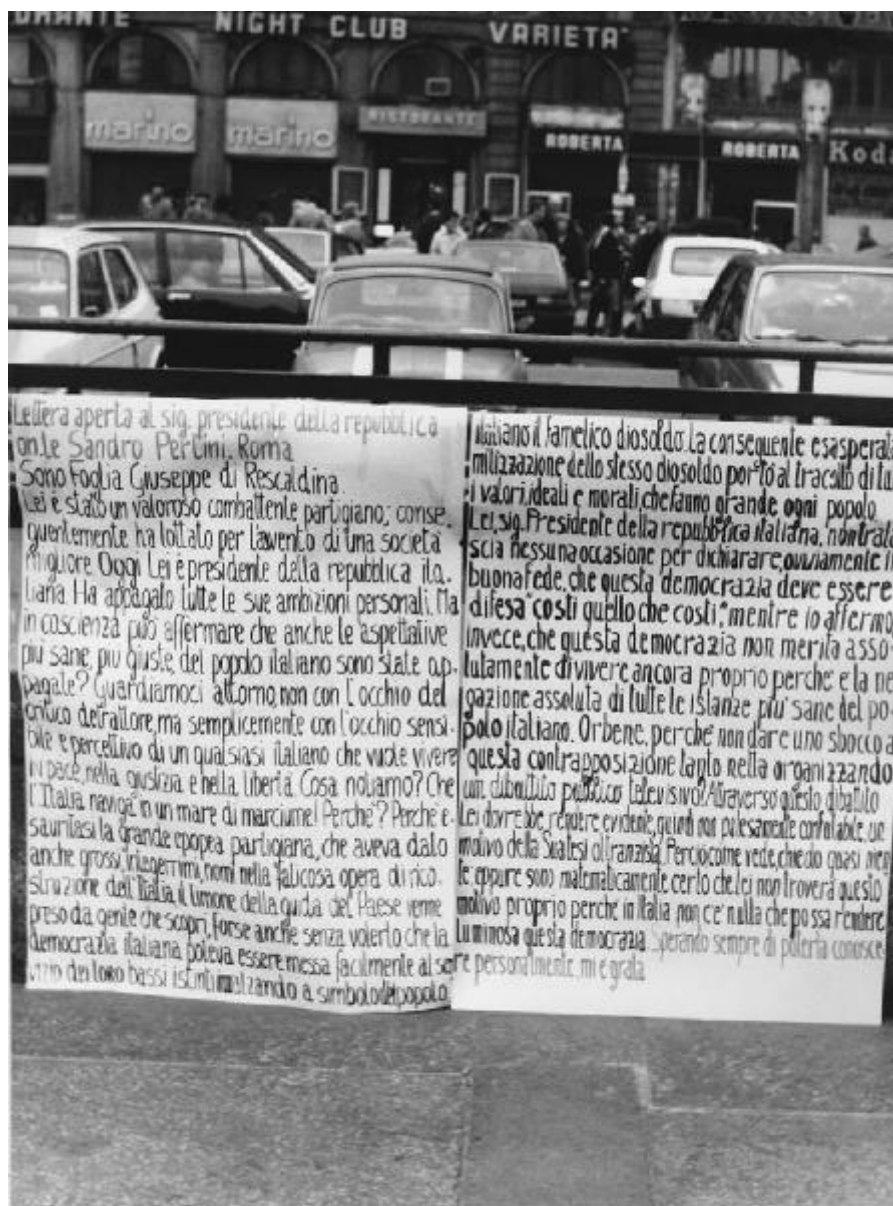 ORANTE NIGHT CLUB VARIETA'
marino marino RISTORANTE ROBERTA ROBERTA Koda
Lettera aperta al sig. presidente della repubblica
on.le Sandro Pertini. Roma
Sono Foglia Giuseppe di Rescaldina
Lei è stato un valoroso combattente partigiano; conse.
guentemente ha lottato per l'avvento di una società
migliore Oggi Lei è presidente della repubblica ita.
liana Ha appagato tutte le sue ambizioni personali. Ma
in coscienza può affermare che anche le aspettative
più sane, più giuste, del popolo italiano sono state ap.
pagate? Guardiamoci attorno, non con l'occhio del
critico detrattore, ma semplicemente con l'occhio sensi.
bile e percettivo di un qualsiasi italiano che vuole vivere
in pace, nella giustizia e nella libertà. Cosa notiamo? Che
l'Italia naviga in un mare di marciume! Perchè? Perchè e.
sauritasi la grande epopea partigiana, che aveva dato
anche grossi, integerrimi, nomi nella faticosa opera di rico.
struzione dell'Italia il timone della guida del Paese venne
preso da gente che scoprì, forse anche senza volerto che la
democrazia italiana poteva essere messa facilmente al ser
vizio dei loro bassi istinti inalzando a simbolo del popolo
italiano il famelico diosoldo. La conseguente esasperata
mitizzazione dello stesso diosoldo portò al tracollo di tu
i valori, ideali e morali, che fanno grande ogni popolo
Lei, sig. Presidente della repubblica italiana, non trala
scia nessuna occasione per dichiarare, ovviamente in
buonafede, che questa democrazia deve essere
difesa "costi quello che costi", mentre io affermo,
invece, che questa democrazia non merita asso-
lutamente di vivere ancora proprio perchè è la ne
gazione assoluta di tutte le istanze più sane del po
polo italiano. Orbene, perchè non dare uno sbocco a
questa contrapposizione tanto netta organizzando
un dibattito pubblico televisivo? Attraverso questo dibattito
Lei dovrebbe, rendere evidente, quindi non palesamente confutabile, un
motivo della Sua tesi oltranzista. Perciò come vede, chiedo quasi nien
te eppure sono matematicamente certo che lei non troverà questo
motivo proprio perchè in Italia non c'è nulla che possa rendere
luminosa questa democrazia Sperando sempre di poterla conosce
re personalmente, mi è grata